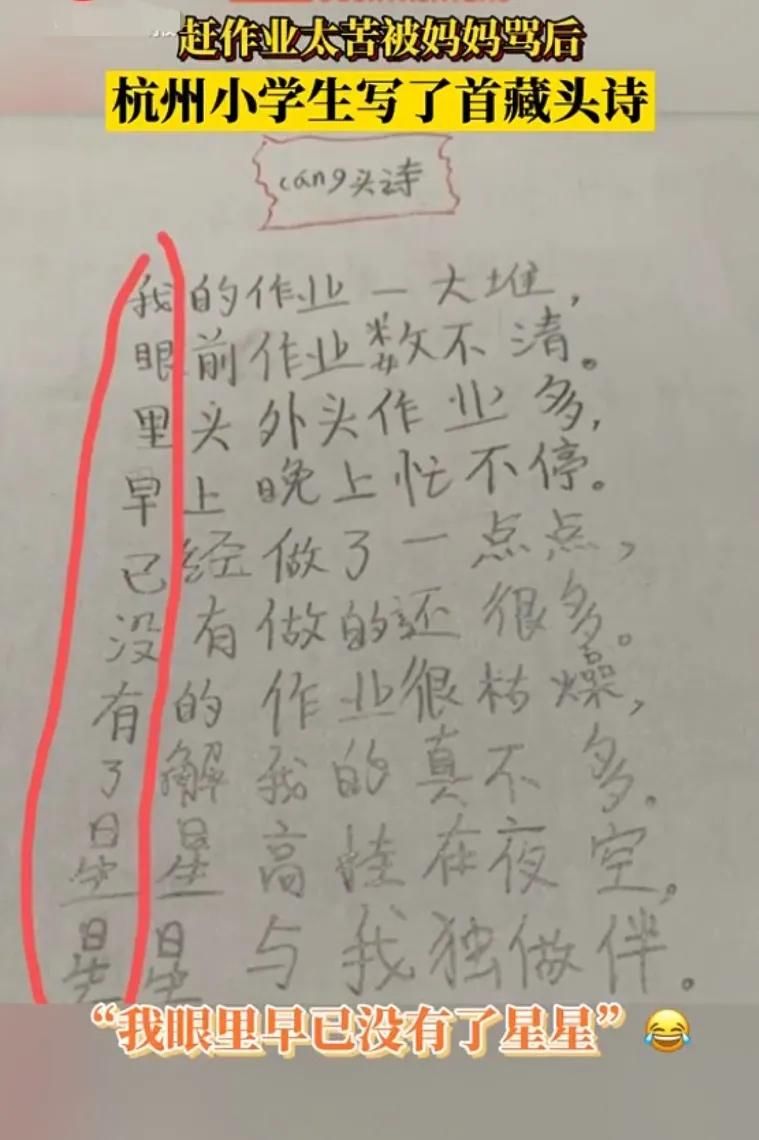 赶作业太苦被妈妈骂后
杭州小学生写了首藏头诗
cáng头诗
我的作业一大堆，
眼前作业数不清。
里头外头作业多，
早上晚上忙不停。
已经做了一点点，
没有做的还很多。
有的作业很枯燥，
了解我的真不多。
星星高挂在夜空，
星星与我独做伴。
“我眼里早已没有了星星”😂